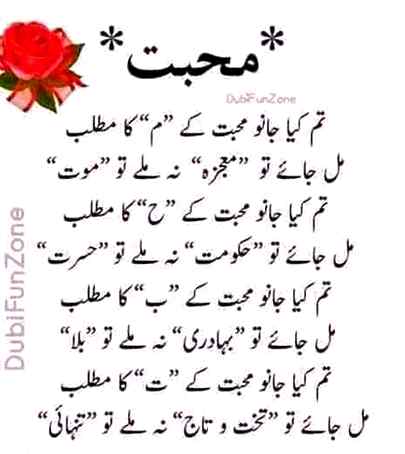 *محبت*
DubiFunZone
تم کیا جانو محبت کے ”م“ کا مطلب
مل جائے تو ”معجزہ“ نہ ملے تو ”موت“
تم کیا جانو محبت کے ”ح“ کا مطلب
مل جائے تو ”حکومت“ نہ ملے تو ”حسرت“
تم کیا جانو محبت کے ”ب“ کا مطلب
مل جائے تو ”بہادری“ نہ ملے تو ”بلا“
تم کیا جانو محبت کے ”ت“ کا مطلب
مل جائے تو ”تخت و تاج“ نہ ملے تو ”تنہائی“
DubiFunZone